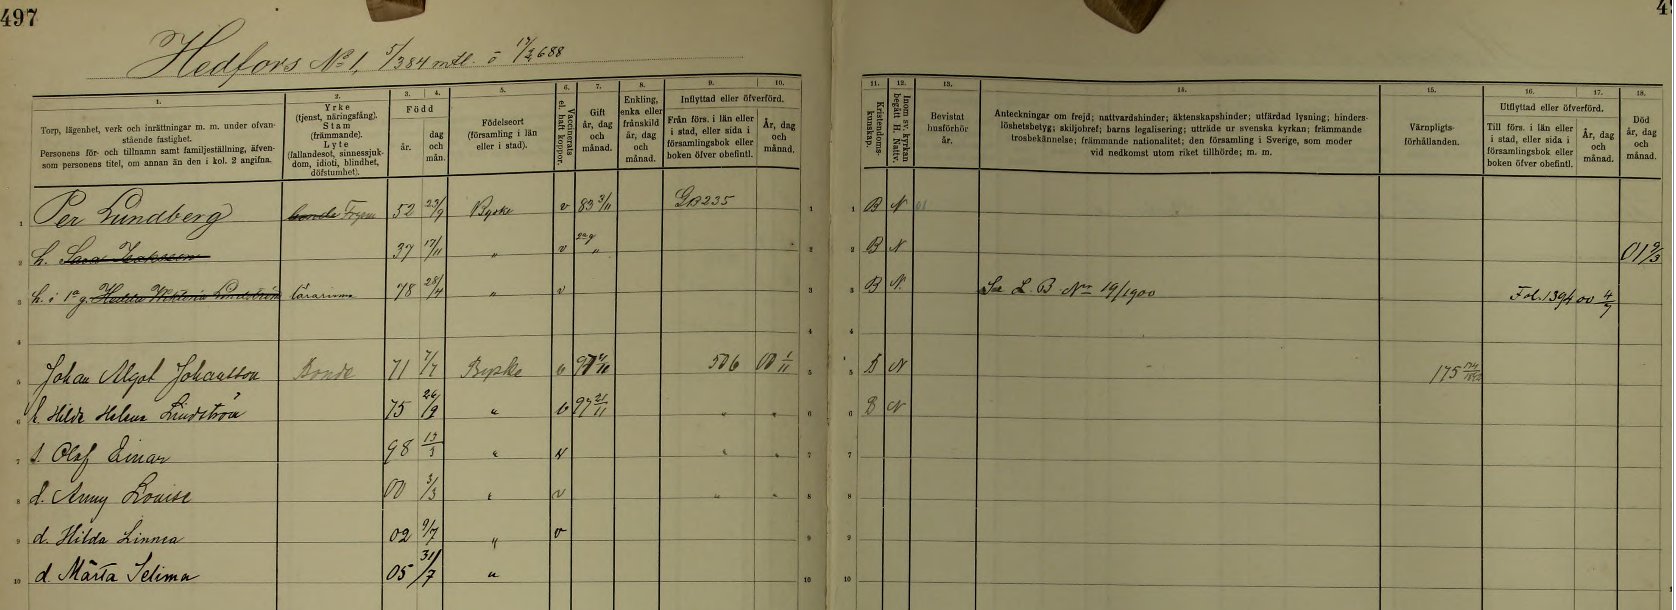 497
Hedfors No 1, 5/384 mtl. o 17/2688
1.
Torp, lägenhet, verk och inrättningar m. m. under ofvan-
stående fastighet.
Personens för- och tillnamn samt familjeställning, äfven-
som personens titel, om annan än den i kol. 2 angifna.
2.
Yrke
(tjenst, näringsfång).
Stam
(främmande).
Lyte
(fallandesot, sinnessjuk-
dom, idioti, blindhet,
döfstumhet).
3. 4.
Född
år.
dag
och
mån.
5.
Födelseort
(församling i län
eller i stad).
6.
Vaccinerats
el. haft koppor.
7.
Gift
år, dag
och
månad.
8.
Enkling,
enka eller
frånskild
år, dag
och
månad.
9. 10.
Inflyttad eller öfverförd.
Från förs. i län eller
i stad, eller sida i
församlingsbok eller
boken öfver obefintl.
År, dag
och
månad.
11.
Kristendoms-
kunskap.
12.
Inom sv. kyrkan
begått H. Nattv.
13.
Bevistat
husförhör
år.
14.
Anteckningar om frejd; nattvardshinder; äktenskapshinder; utfärdad lysning; hinders-
löshetsbetyg; skiljobref; barns legalisering; utträde ur svenska kyrkan; främmande
trosbekännelse; främmande nationalitet; den församling i Sverige, som moder
vid nedkomst utom riket tillhörde; m. m.
15.
Värnpligts-
förhållanden.
16. 17.
Utflyttad eller öfverförd.
Till förs. i län eller
i stad, eller sida i
församlingsbok eller
boken öfver obefintl.
År, dag
och
månad.
18.
Död
år, dag
och
månad.
1 Per Lundberg 52 23/9 Byske v 83 3/11 GB 235 1 1 B N
2 h. 37 17/11 " v " 2 2 B N 01 9/3
3 h. i 1a g. Hulda Viktoria Lundström Lärarinna 78 28/4 " v 3 3 B N. Se L. B Nr 19/1900 Fol. 1394 00 4/7
4 4 4
5 Johan Algot Johansson Bonde 71 7/7 Byske v 506 00 1/11 5 5 B N 175
6 h. Hilda Helena Lindström 75 26/9 " v 97 21/11 " " 6 6 B N
7 s. Olof Einar 98 13/3 " v " " 7 7
8 d. Anny Lovise 00 3/3 " v " " 8 8
9 d. Hilda Linnea 02 9/7 " v 9 9
10 d. Märta Selima 05 31/7 " 10 10